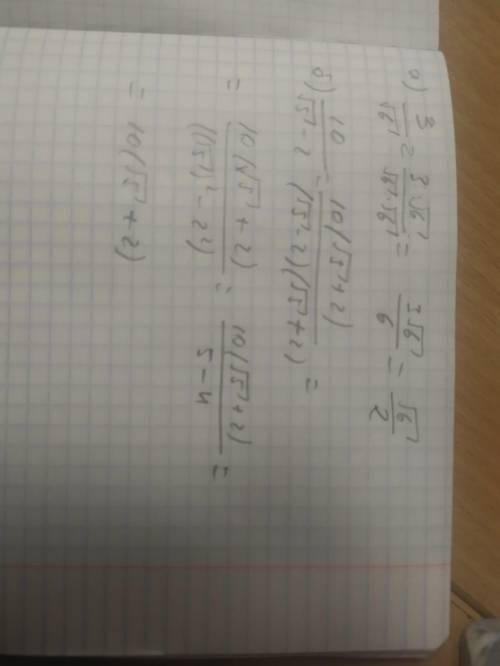 а) 3/√6 = 3√6/√6·√6 = 3√6/6 = √6/2
б) 10/√5-2 = 10(√5+2)/(√5-2)(√5+2) =
= 10(√5+2)/(√5)²-2² = 10(√5+2)/5-4 =
= 10(√5+2)